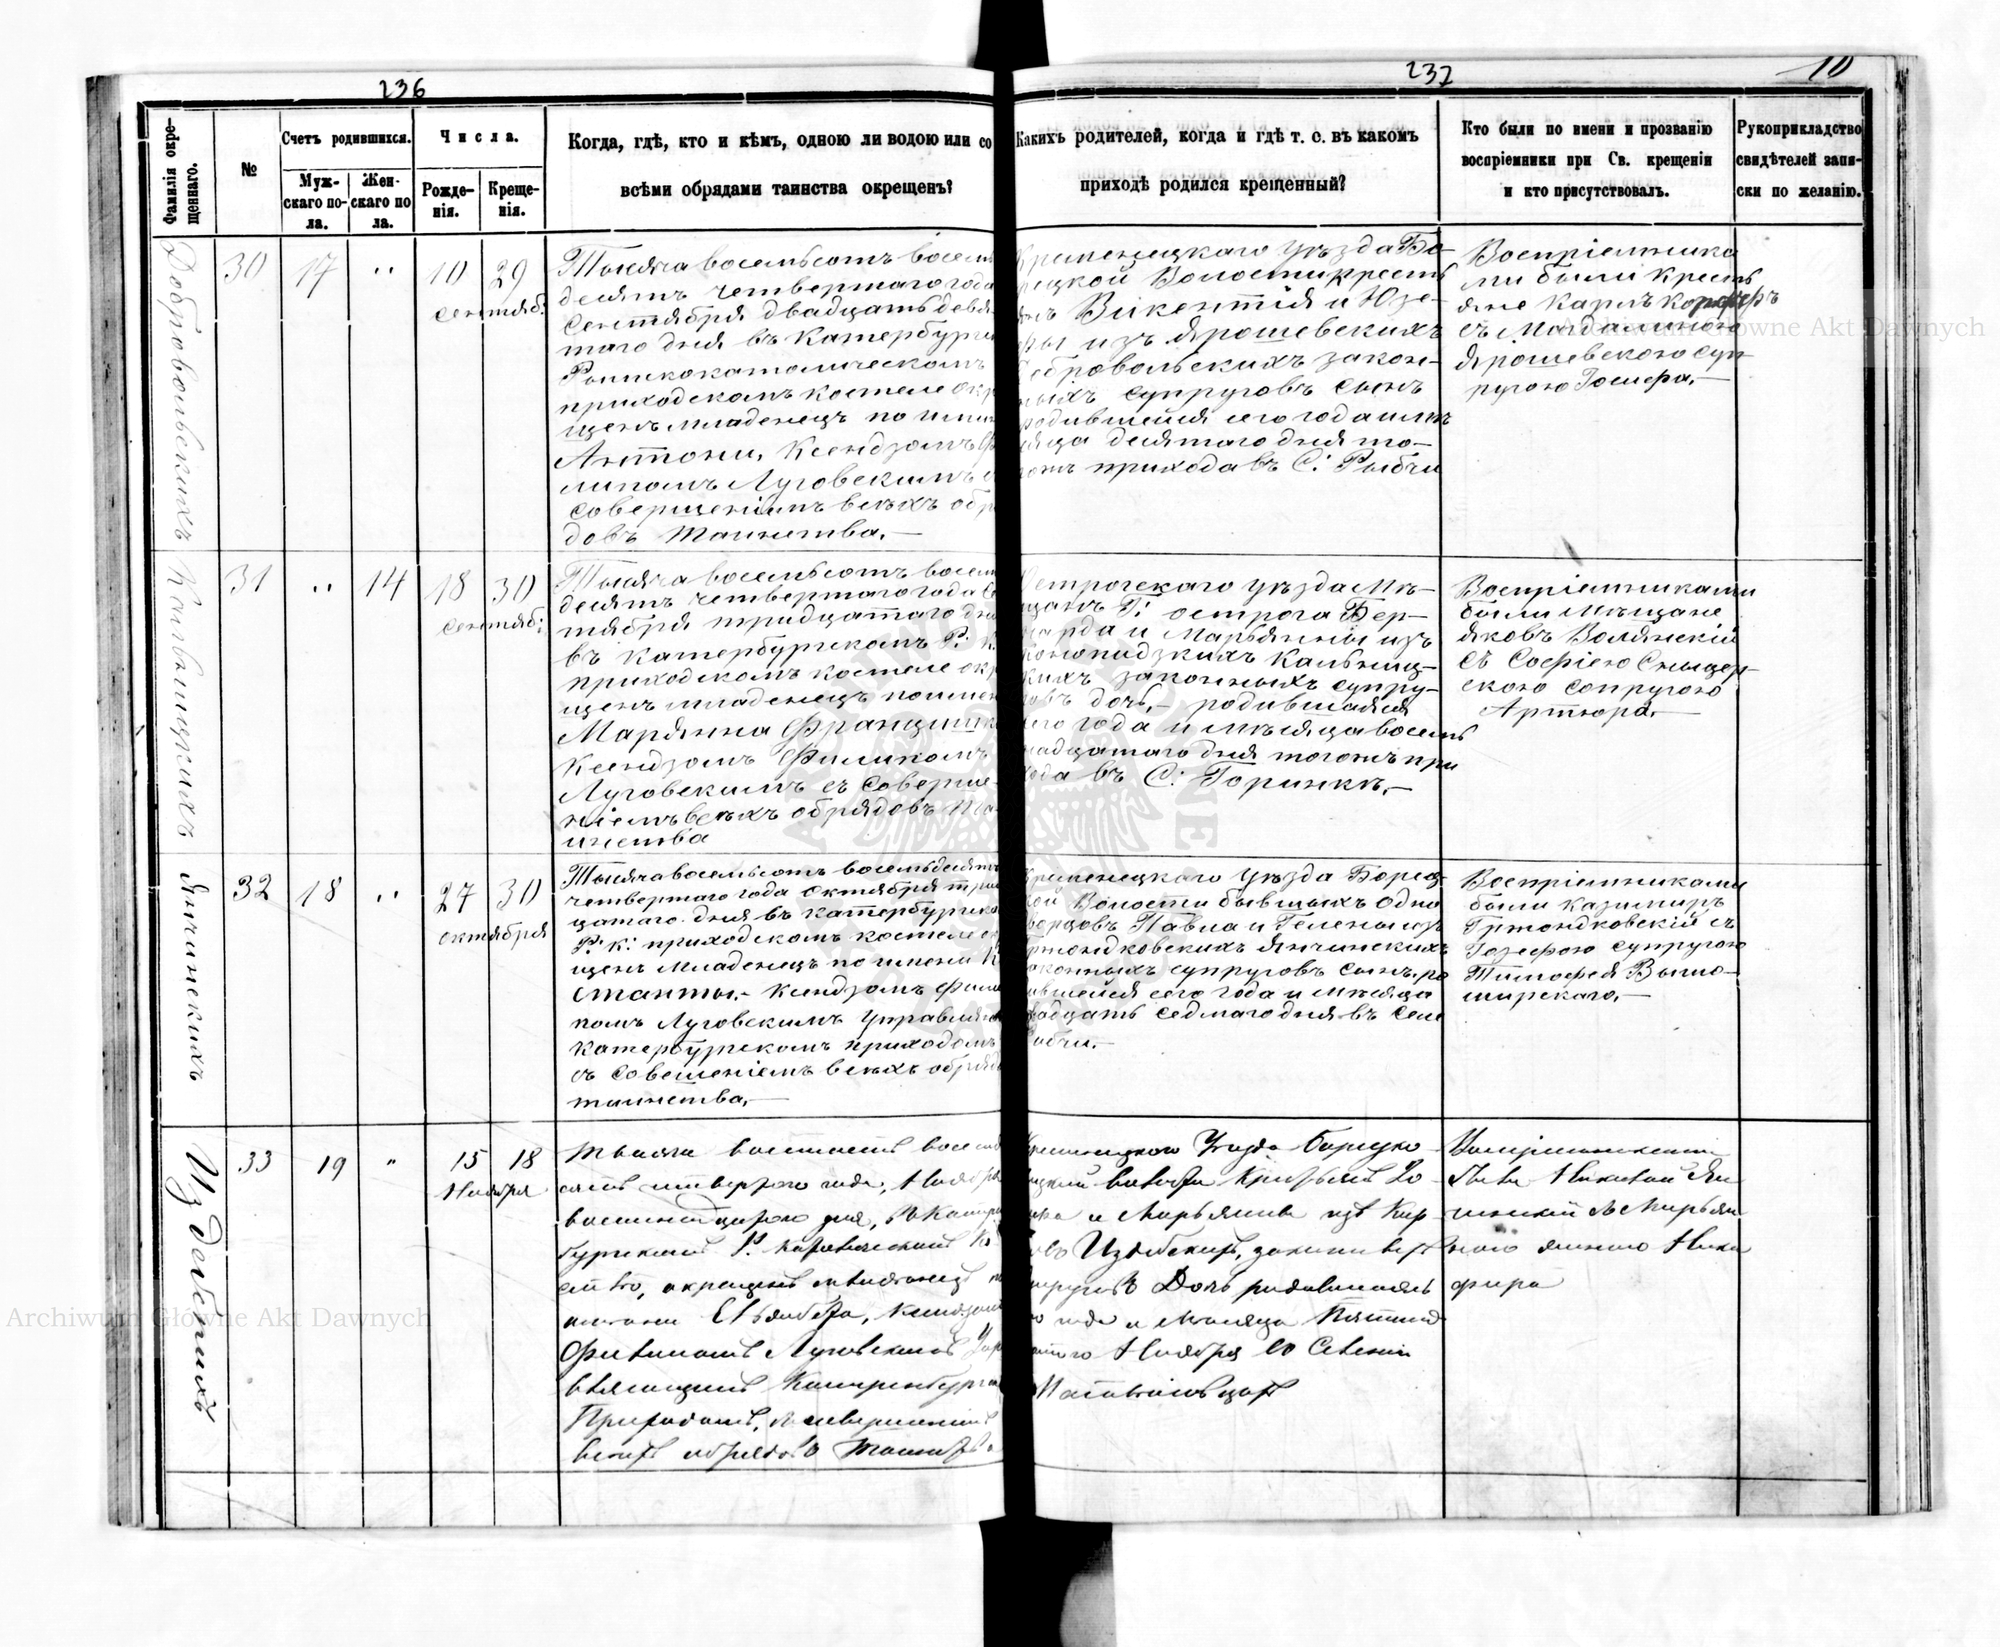 236
237
10
Фамилія окре-
щеннаго.
№
Счетъ родившихся.
Муж-
скаго по-
ла.
Жен-
скаго по
ла.
Числа.
Рожде-
нія.
Креще-
нія.
Когда, гдѣ, кто и кѣмъ, одною ли водою или со
всѣми обрядами таинства окрещенъ?
Какихъ родителей, когда и гдѣ т. с. въ какомъ
приходѣ родился крещенный?
Кто были по имени и прозванію
воспріемники при Св. крещеніи
и кто присутствовалъ.
Рукоприкладство
свидѣтелей запи-
ски по желанію.
Добровольскихъ
30
17
"
10
29
сентяб.
Тысяча восемьсотъ восемь
десятъ четвертаго года
Сентября двадцать девя
таго дня въ Катербург
Римскокатолическомъ
приходскомъ костеле окр
щенъ младенецъ по имен
Антони, Ксендзомъ Фи
липомъ Луговскимъ с
совершеніемъ всѣхъ обр
довъ таинства.—
Кременецкаго уѣзда Бо-
рецкой Волости кресть
янъ Викентія и Юзе-
фы изъ Ярошевскихъ
Добровольскихъ закон-
ныхъ супруговъ сынъ
родившейся сего года и мѣ
сяца десятаго дня то-
гожъ прихода въ С: Рыбчи
Воспріемника
ми были кресть
яне Карлъ
съ Магдалиною
Ярошевскою суп-
ругою Іосифа.—
Кальницкихъ
31
"
14
18
30
сентяб:
Тысяча восемьсотъ восем
десятъ четвертаго года Се
нтября тридцатаго дня
въ Катербургскомъ Р: К.
приходскомъ костеле окр
щенъ младенецъ по имен
Марянна Францишк
Ксендзомъ Филипомъ
Луговскимъ съ соверше-
ніемъ всѣхъ обрядовъ та-
инства
Острогскаго уѣзда мѣ-
щанъ Г: Острога Бер-
нарда и Марьянны изъ
Конопидзкихъ Кальниц-
кихъ законныхъ супру-
говъ дочь,— родившаяся
сего года и мѣсяца восемь
надцатаго дня тогожъ при
хода въ С: Горинкѣ.—
Воспріемниками
были мѣщане
Яковъ Волянскій
съ Софіею
скою сопругою
Артюра.—
Янчинскихъ
32
18
"
27
30
октября
Тысяча восемьсотъ восемьдесятъ
четвертаго года октября трид
цатаго дня въ Катербургско
Р: К: приходскомъ костеле ок
щенъ младенецъ по имени К
станты.— Ксендзомъ Фили
помъ Луговскимъ Управля
Катербургскомъ приходомъ
съ совешеніемъ всѣхъ обряд
таинства.—
Кременецкаго уѣзда Борец
кой Волости бывшыхъ одно
ворцовъ Павла и Гелены изъ
Гртондковскихъ Янчинскихъ
законныхъ супруговъ сынъ, ро
дившейся сего года и мѣсяца
двадцать седмаго дня въ селе
Рыбчи.—
Воспріемниками
были Казимиръ
Гртондковскій съ
Іозефою супругою
Тимофея Вышо-
мирскаго.—
Издебскихъ
33
19
"
15
18
Ноября
Тысяча восемьсотъ восемьд
есятъ четвертаго года, Ноября
восемнадцатого дня, въ Катер
бургскомъ Р. Католическомъ Ко
стелѣ, окрещенъ младенецъ по
имени Ельзабета, Ксендзомъ
Филипомъ Луговскимъ Упр
вляющимъ Катеринбургск
Приходомъ, съ совершеніемъ
всѣхъ обрядовъ Таинства
Кременецкого Уѣзда Борецко
волости Крестьянъ
и Марьянны изъ
Издебскихъ, законныхъ
супруговъ Дочь родившаяся
сего года и мѣсяца Пятнад
цатого Ноября въ Селении
Воспріемниками
были Николай Ян
чинский съ Марьян
ною женою Ники
фира
Archiwum Główne Akt Dawnych
Archiwum Główne Akt Dawnych